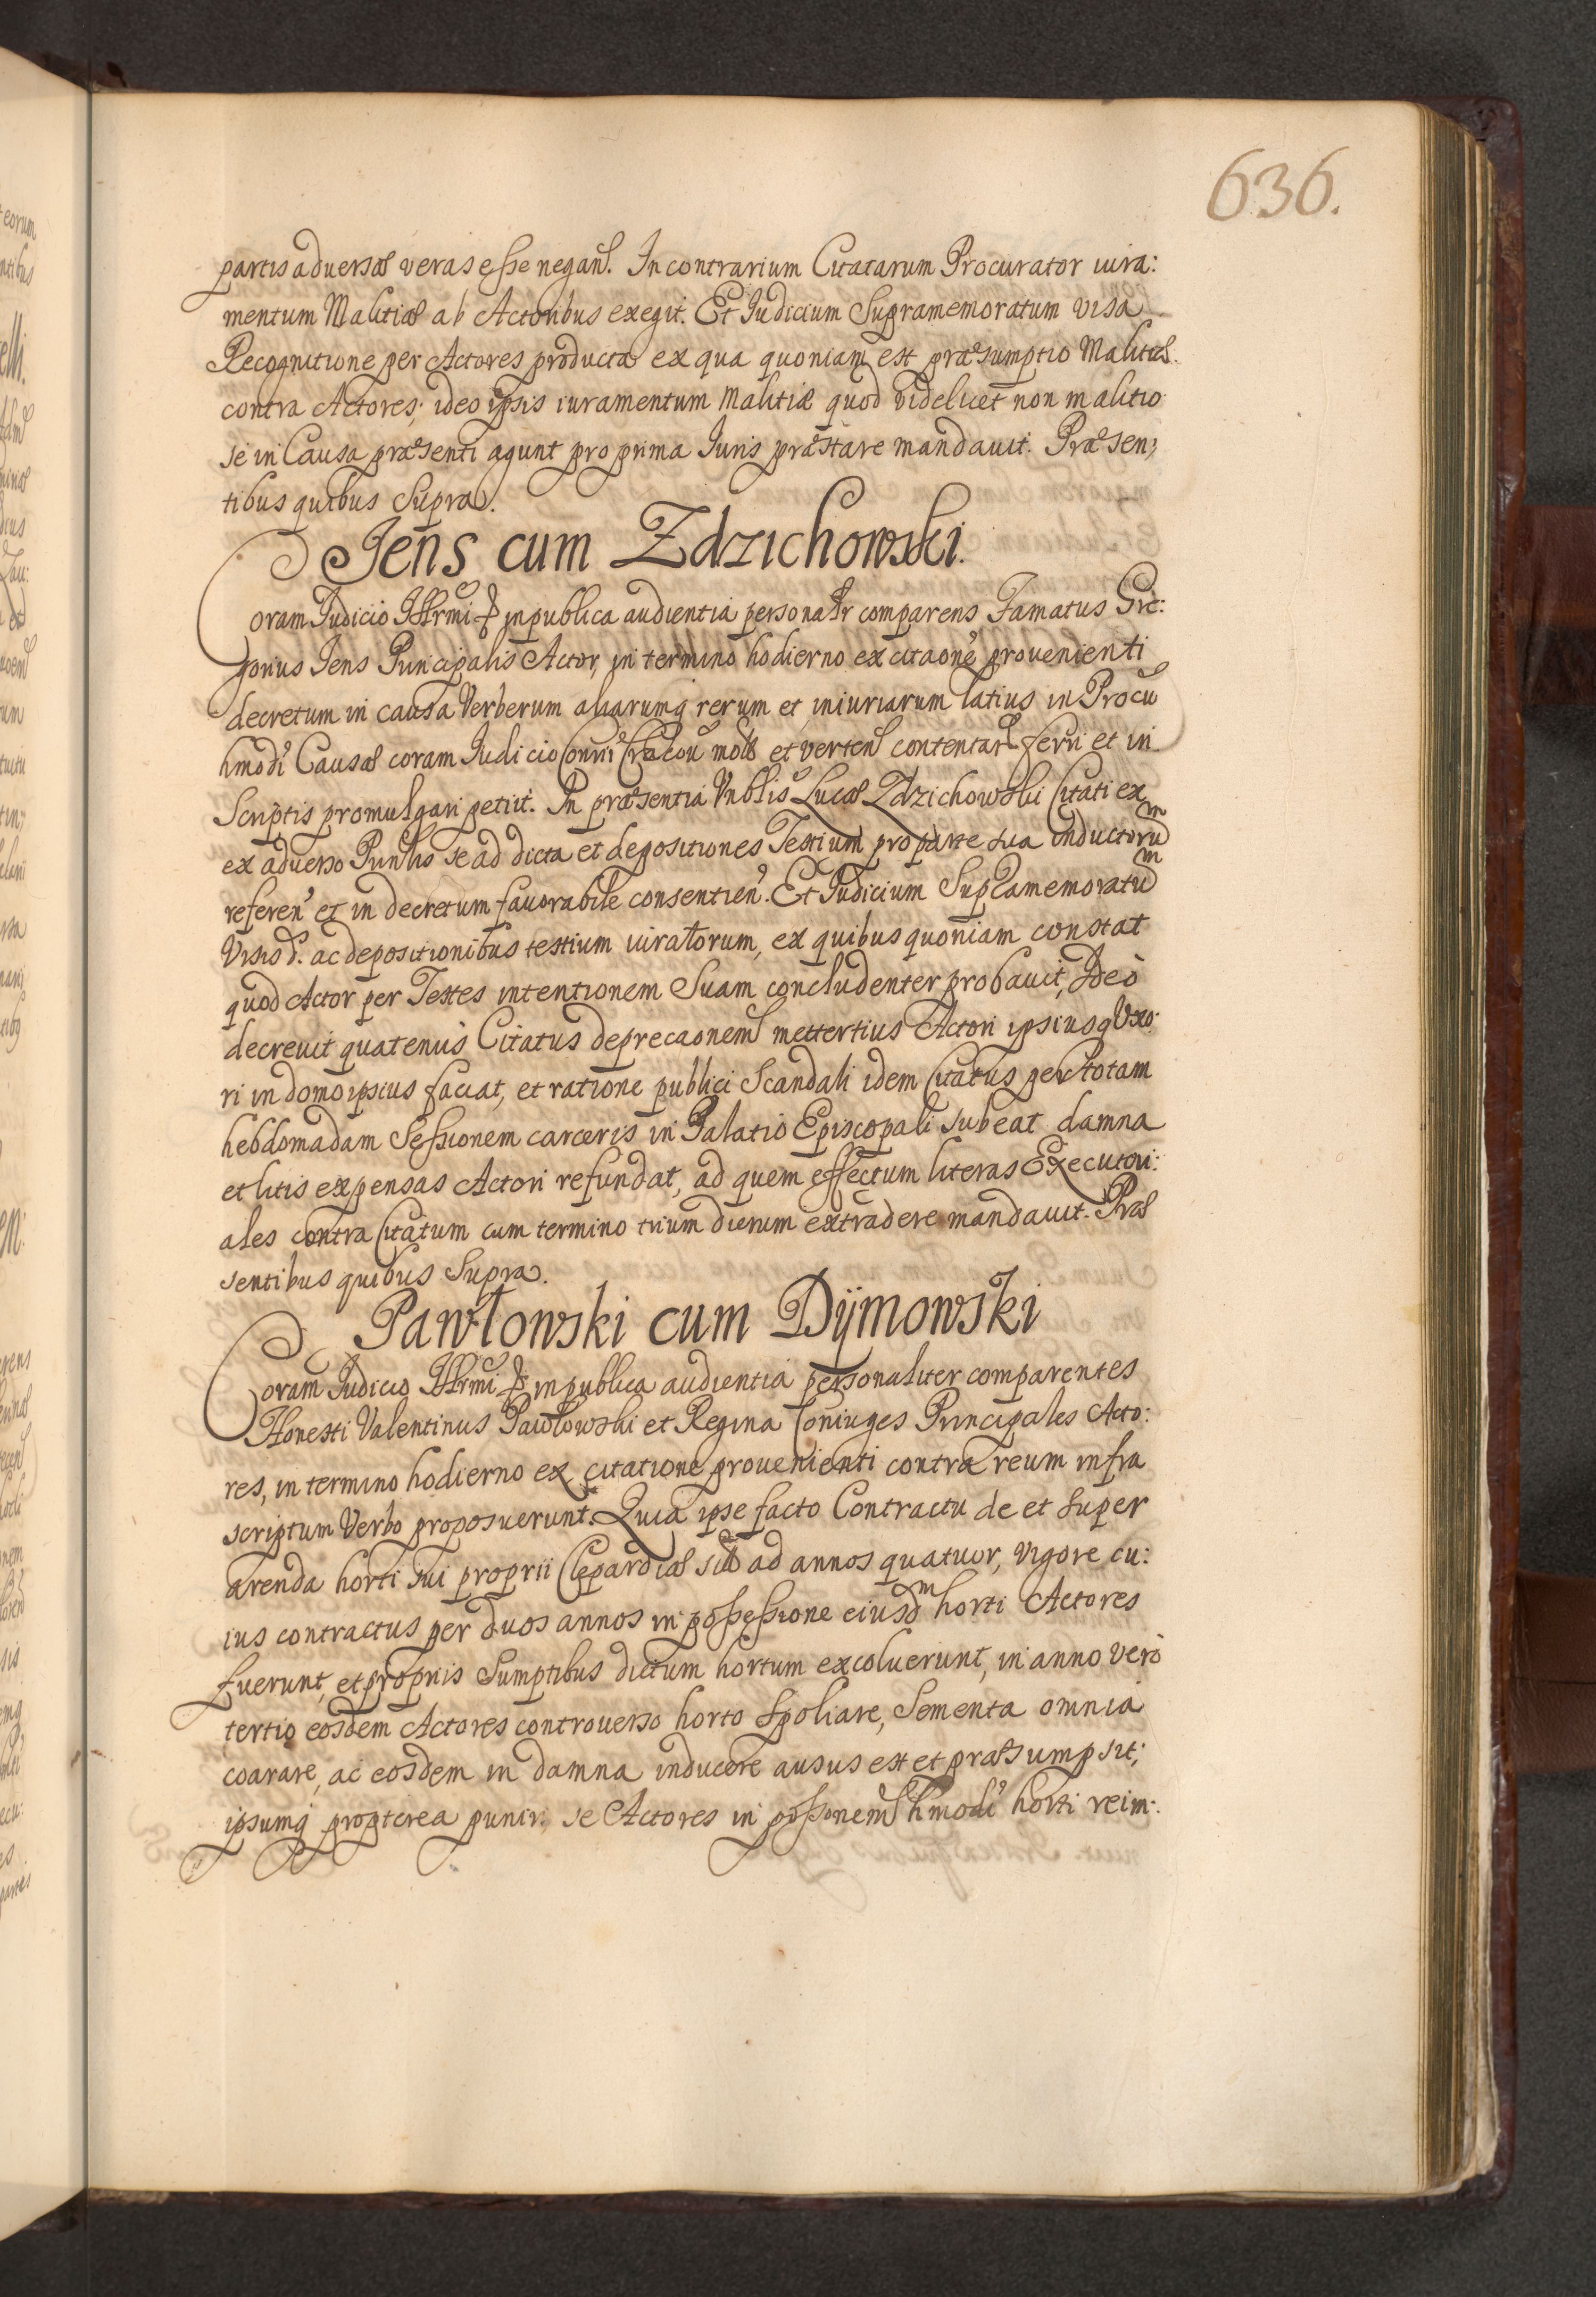 636.
partis adversæ veras esse negan. In contrarium Citatarum Procurator iura:
mentum Malitiæ ab Actoribus exegit. Et Iudicium Supramemoratum visa
Recognitione per Actores producta ex qua quoniam est præsumptio Malitiæ
contra Actores; ideo ipsis iuramentum Malitiæ quod videlicet non malitio
se in Causa præsenti agunt pro prima Iuris præstare mandavit. Præsen;
tibus quibus Supra.
Jens cum Zdzichowski.
Coram Iudicio in publica audientia personalr comparens Famatus Gre:
gorius Jens Principalis Actor, in termino hodierno ex citaone provenienti
decretum in causa Verberum aliarumq rerum et iniuriarum latius in Procu
hmodi Causæ coram Iudicio et verten contentar ferri et in
Scriptis promulgari petiit. In præsentia Lucæ Zdzichowski Citati ex
ex adverso Punlis se ad dicta et depositiones Testium pro parte sua inductoru m
referen et in decretum favorabile consentien. Et Iudicium Supramemoratu m
Visis d. ac depositionibus testium iuratorum, ex quibus quoniam constat
quod Actor per Testes intentionem Suam concludenter probavit, Ideò
decrevit quatenus Citatus deprecaonem mettertius Actori ipsiusq Uxo:
ri in domo ipsius faciat, et ratione publici Scandali idem Citatus per totam
hebdomadam Sessionem carceris in Palatio Episcopali subeat damna
et litis expensas Actori refundat, ad quem effectum literas Executori:
ales contra Citatum cum termino trium dierum extradere mandavit. Præ
sentibus quibus Supra.
Pawłowski cum Dÿmowski
Coram Iudicio in publica audientia personaliter comparentes
Honesti Valentinus Pawłowski et Regina Coniuges Principales Acto:
res, in termino hodierno ex citatione provenienti contra reum infra
scriptum Verbo proposuerunt. Quia ipse facto Contractu de et super
arenda horti sui proprii Clepardiæ ad annos quatuor, vigore cu:
ius contractus per duos annos in possessione eiusd m horti Actores
fuerunt, et propriis Sumptibus dictum hortum excoluerunt, in anno verò
tertio eosdem Actores controverso horto Spoliare, Sementa omnia
coarare, ac eosdem in damna inducere ausus est et præsumpsit;
ipsumq propterea puniri, se Actores in possonem hmodi horti reim: